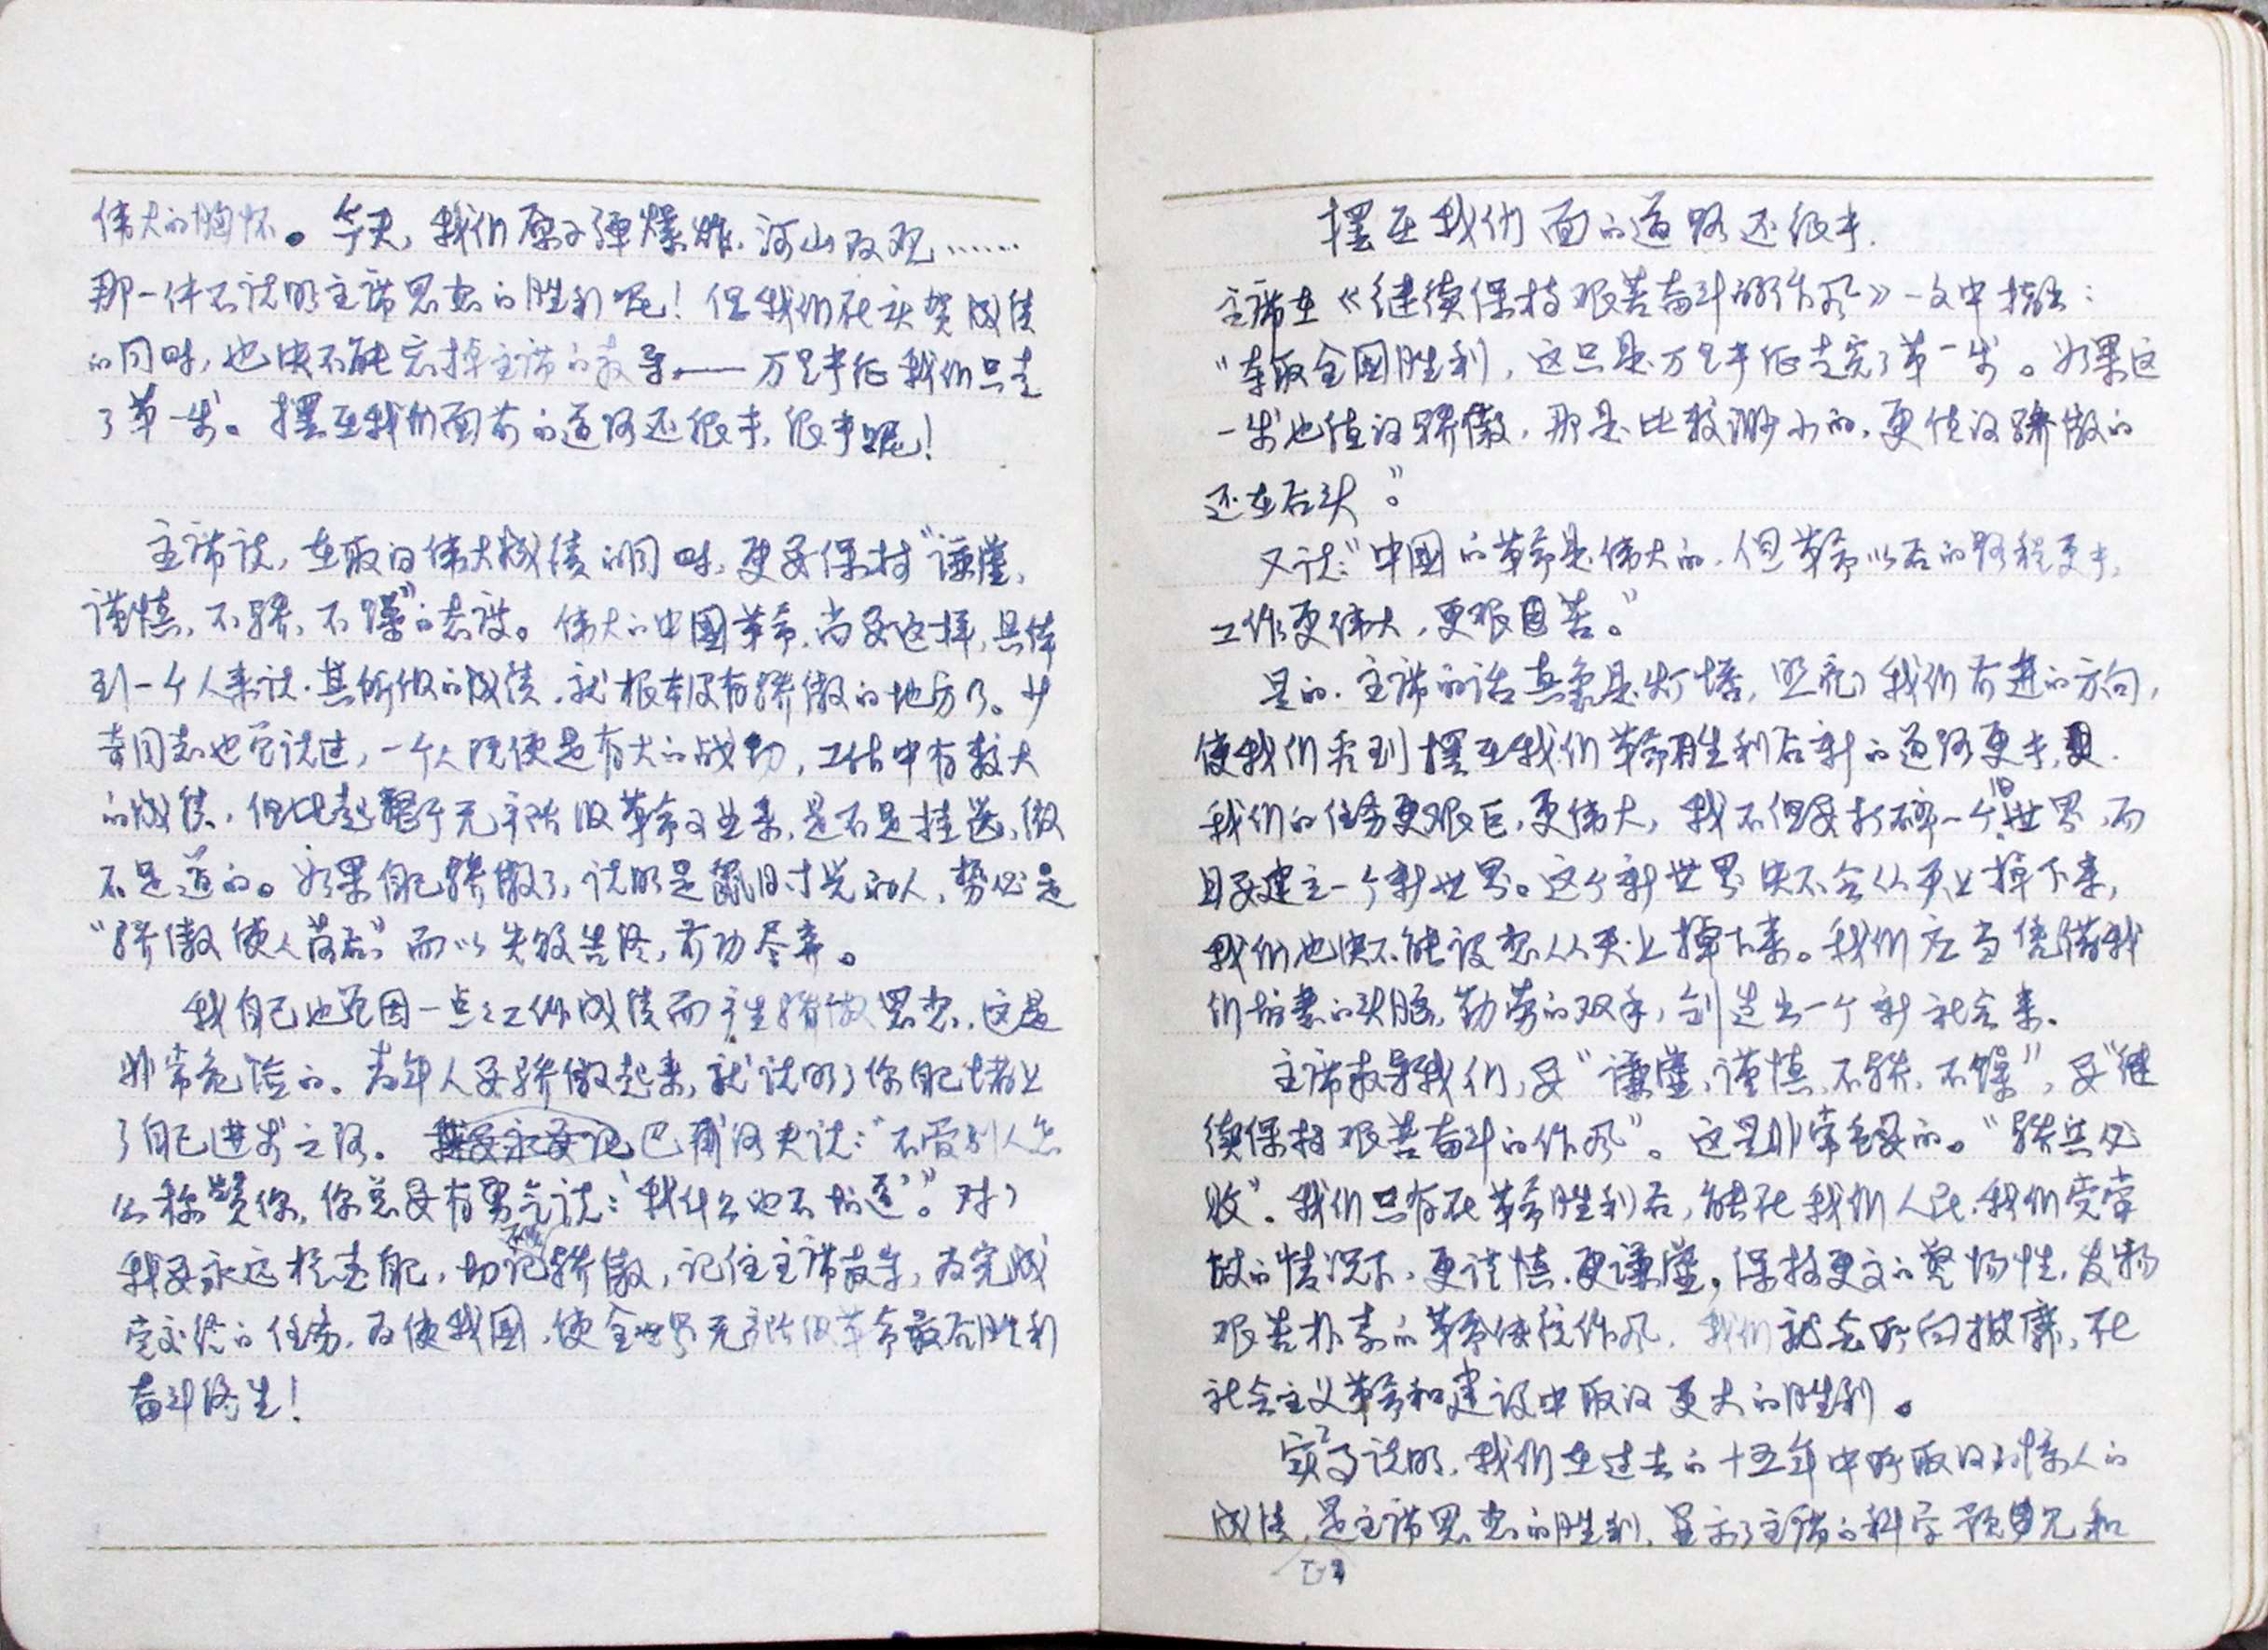 伟大的胸怀。今天,我们原子弹爆炸.河山改观……
那一件不说明主席思想的胜利呢!但我们在庆贺成绩
的同时,也决不能忘掉主席的教导,——万里长征我们只走
了第一步。摆在我们面前的道路还很长,很长呢!
主席说,在取得伟大成绩的同时,更要保持“谦虚、
谨慎、不骄、不躁”的态度。伟大的中国革命,尚要这样,具体
到一个人来说.其所做的成绩.就根本没有骄傲的地方了。少
奇同志也尝说过,一个人既使是有大的战功,工作中有较大
的成绩,但比起无产阶级革命事业来,是不足挂,微
不足道的。如果自己骄傲了,说明是鼠目寸光的人,势必是
“骄傲使人落后”而以失败告终,前功尽弃。
我自己也曾因一点点工作成绩而产生骄傲思想,这是
非常危险的。青年人要骄傲起来,就说明了你自己堵上
了自己进步之路。巴甫洛夫说:“不管别人怎
么称赞你,你总要有勇气说:‘我什么也不知道’”。对了
我要永远检查自己,切记不要骄傲,记住主席教导,为完成
党交给的任务.为使我国.使全世界无产阶级革命最后胜利
奋斗终生!
摆在我们面的道路还很长.
主席在《继续保持艰苦奋斗的作风》一文中指出:
“夺取全国胜利,这只是万里长征走完了第一步。如果这
一步也值得骄傲,那是比较渺小的,更值得骄傲的
还在后头”。
又说:“中国的革命是伟大的.但革命以后的路程更长,
工作更伟大,更艰苦。”
是的.主席的话真象是灯塔,照亮了我们前进的方向,
使我们看到摆在我们革命胜利后新的道路更长,
我们的任务更艰巨,更伟大,我不但要打碎一个旧世界,而
且要建立一个新世界。这个新世界决不会从天上掉下来,
我们也决不能设想从天上掉下来。我们应当凭借我
们智慧的头脑,勤劳的双手,创造出一个新社会来.
主席教导我们,要“谦虚、谨慎、不骄、不躁”,要“继
续保持艰苦奋斗的作风”。这是非常重要的。“骄兵必
败”.我们只有在革命胜利后,能在我们人民.我们党掌
的情况下,更谨慎.更谦虚,保持更高的警惕性,发扬
艰苦朴素的革命传统作风,我们就会所向披靡,在
社会主义革命和建设中取得更大的胜利。
实事说明.我们在过去的十五年中所取得的惊人的
成绩,是主席思想的胜利,显示了主席的科学预见和